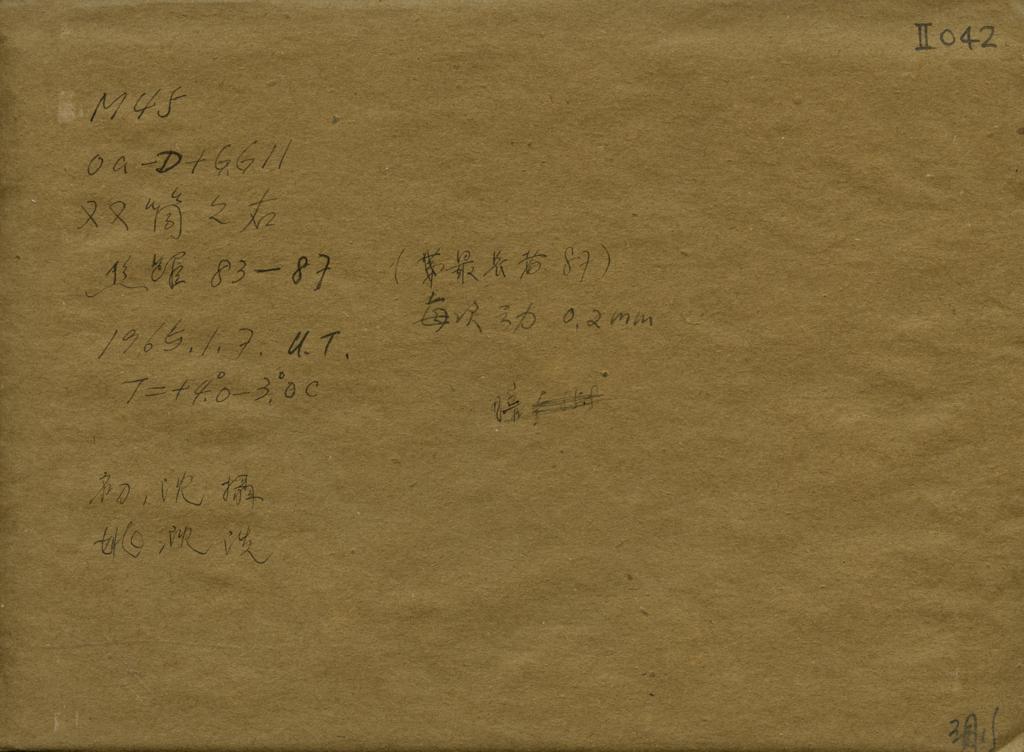 II 042
M45
0a-D+GG11
双筒之右
焦距 83—87 (第最长者 87)
每次动 0.2mm
1965.1.7. U.T.
T=+4°.0-3°.0C
暗
初, 沈 攝
姚 沈 洗